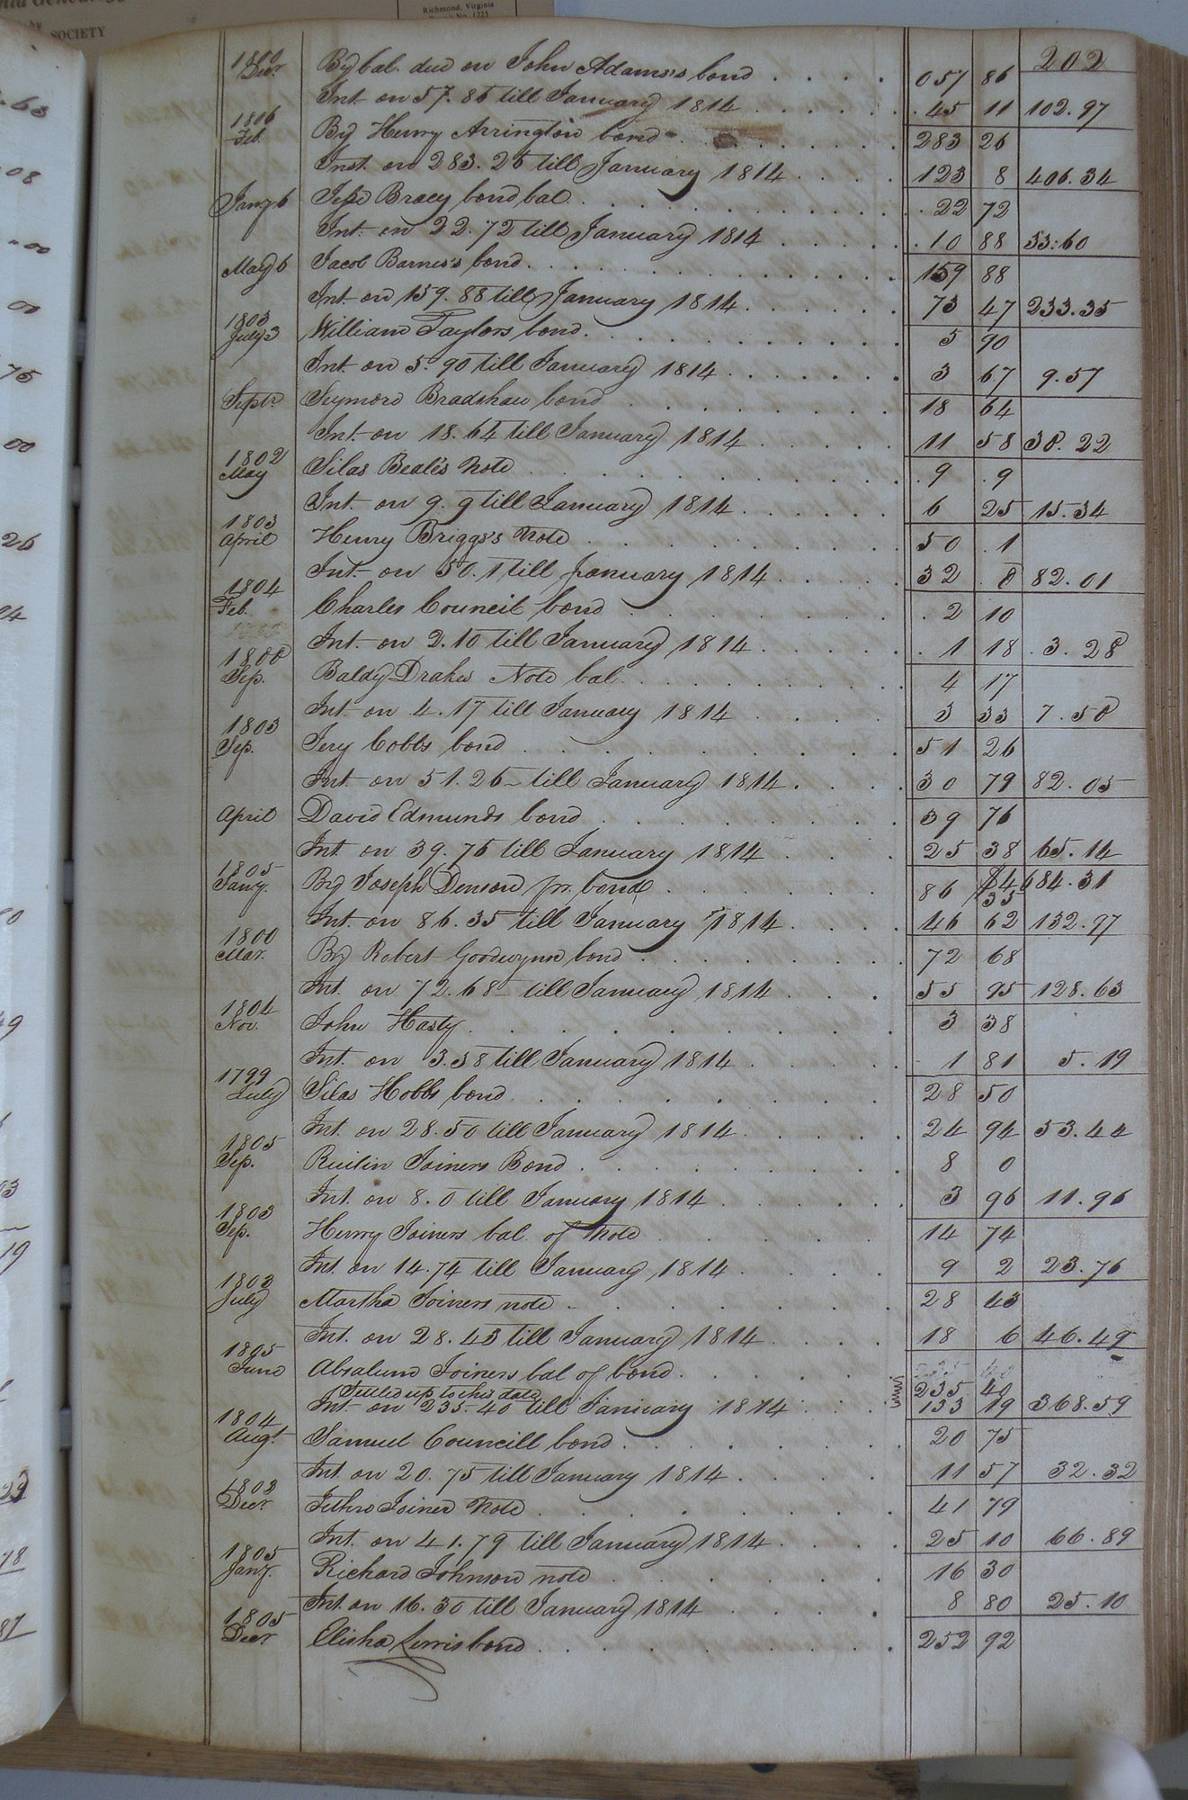 SOCIETY
Richmond, Virginia
202
Decr By bal. due on John Adams's bond 057 86
Int. on 57.86 till January 1814 45 11 102.97
1806
Feb. By Henry Arrington bond 283 26
Inst. on 283.26 till January 1814 123 8 406.34
Jany 6 Jesse Bracy bond bal 22 72
Int. on 22.72 till January 1814 10 88 33:60
May 6 Jacob Barnes's bond 159 88
Int. on 159.88 till January 1814 73 47 233.35
1803
July 3 William Taylors bond 5 90
Int. on 5.90 till January 1814 3 67 9.57
Septr. Seymore Bradshaw bond 18 64
Int. on 18.64 till January 1814 11 58 30.22
1802
May Silas Beale's Note 9 9
Int. on 9.9 till January 1814 6 25 15.34
1803
April Henry Briggs's Note 50 1
Int. on 50.1 till January 1814 32 8 82.01
1804
Feb. Charles Council bond 2 10
Int. on 2.10 till January 1814 1 18 3.28
1800
Sep. Baldy Drakes Note bal 4 17
Int. on 4.17 till January 1814 3 33 7.50
1803
Sep. Jery Cobbs bond 51 26
Int. on 51.26 till January 1814 30 79 82.05
April David Edmunds bond 39 76
Int. on 39.76 till January 1814 25 38 65.14
1805 684.31
Jany. By Joseph Denson jr. bond 86 35
Int. on 86.35 till January 1814 46 62 132.97
1800
Mar. By Robert Goodwynn bond 72 68
Int. on 72.68 till January 1814 55 95 128.63
1804
Nov. John Hasty 3 38
Int. on 3.38 till January 1814 1 81 5.19
1799
July Silas Hobbs bond 28 50
Int. on 28.50 till January 1814 24 94 53.44
1805
Sep. Joiners Bond 8 0
Int. on 8.0 till January 1814 3 96 11.96
1803
Sep. Henry Joiners bal of Note 14 74
Int. on 14.74 till January 1814 9 2 23.76
1803
July Martha Joiners note 28 43
Int. on 28.43 till January 1814 18 6 46.49
1805
June Absalum Joiners bal of bond 235 40
Settled up to this date
Int. on 235.40 till January 1814 133 19 368.59
1804
Augt. Samuel Councill bond 20 75
Int. on 20.75 till January 1814 11 57 32.32
1803
Decr Jethro Joiner Note 41 79
Int. on 41.79 till January 1814 25 10 66.89
1805
Jany. Richard Johnson note 16 30
Int. on 16.30 till January 1814 8 80 25.10
1805
Decr Elisha Lewis bond 252 92